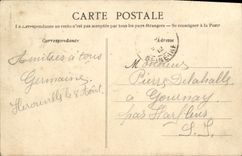 CARTE POSTALE
La Correspondance au recto n'est pas acceptée par tous les pays étrangers — Se renseigner à la Poste
Correspondance
Adresse
Amitiés à tous
Germaine
Herouville le 8 Août
M
Pierre
à Gournay
par Harfleur
S. I.